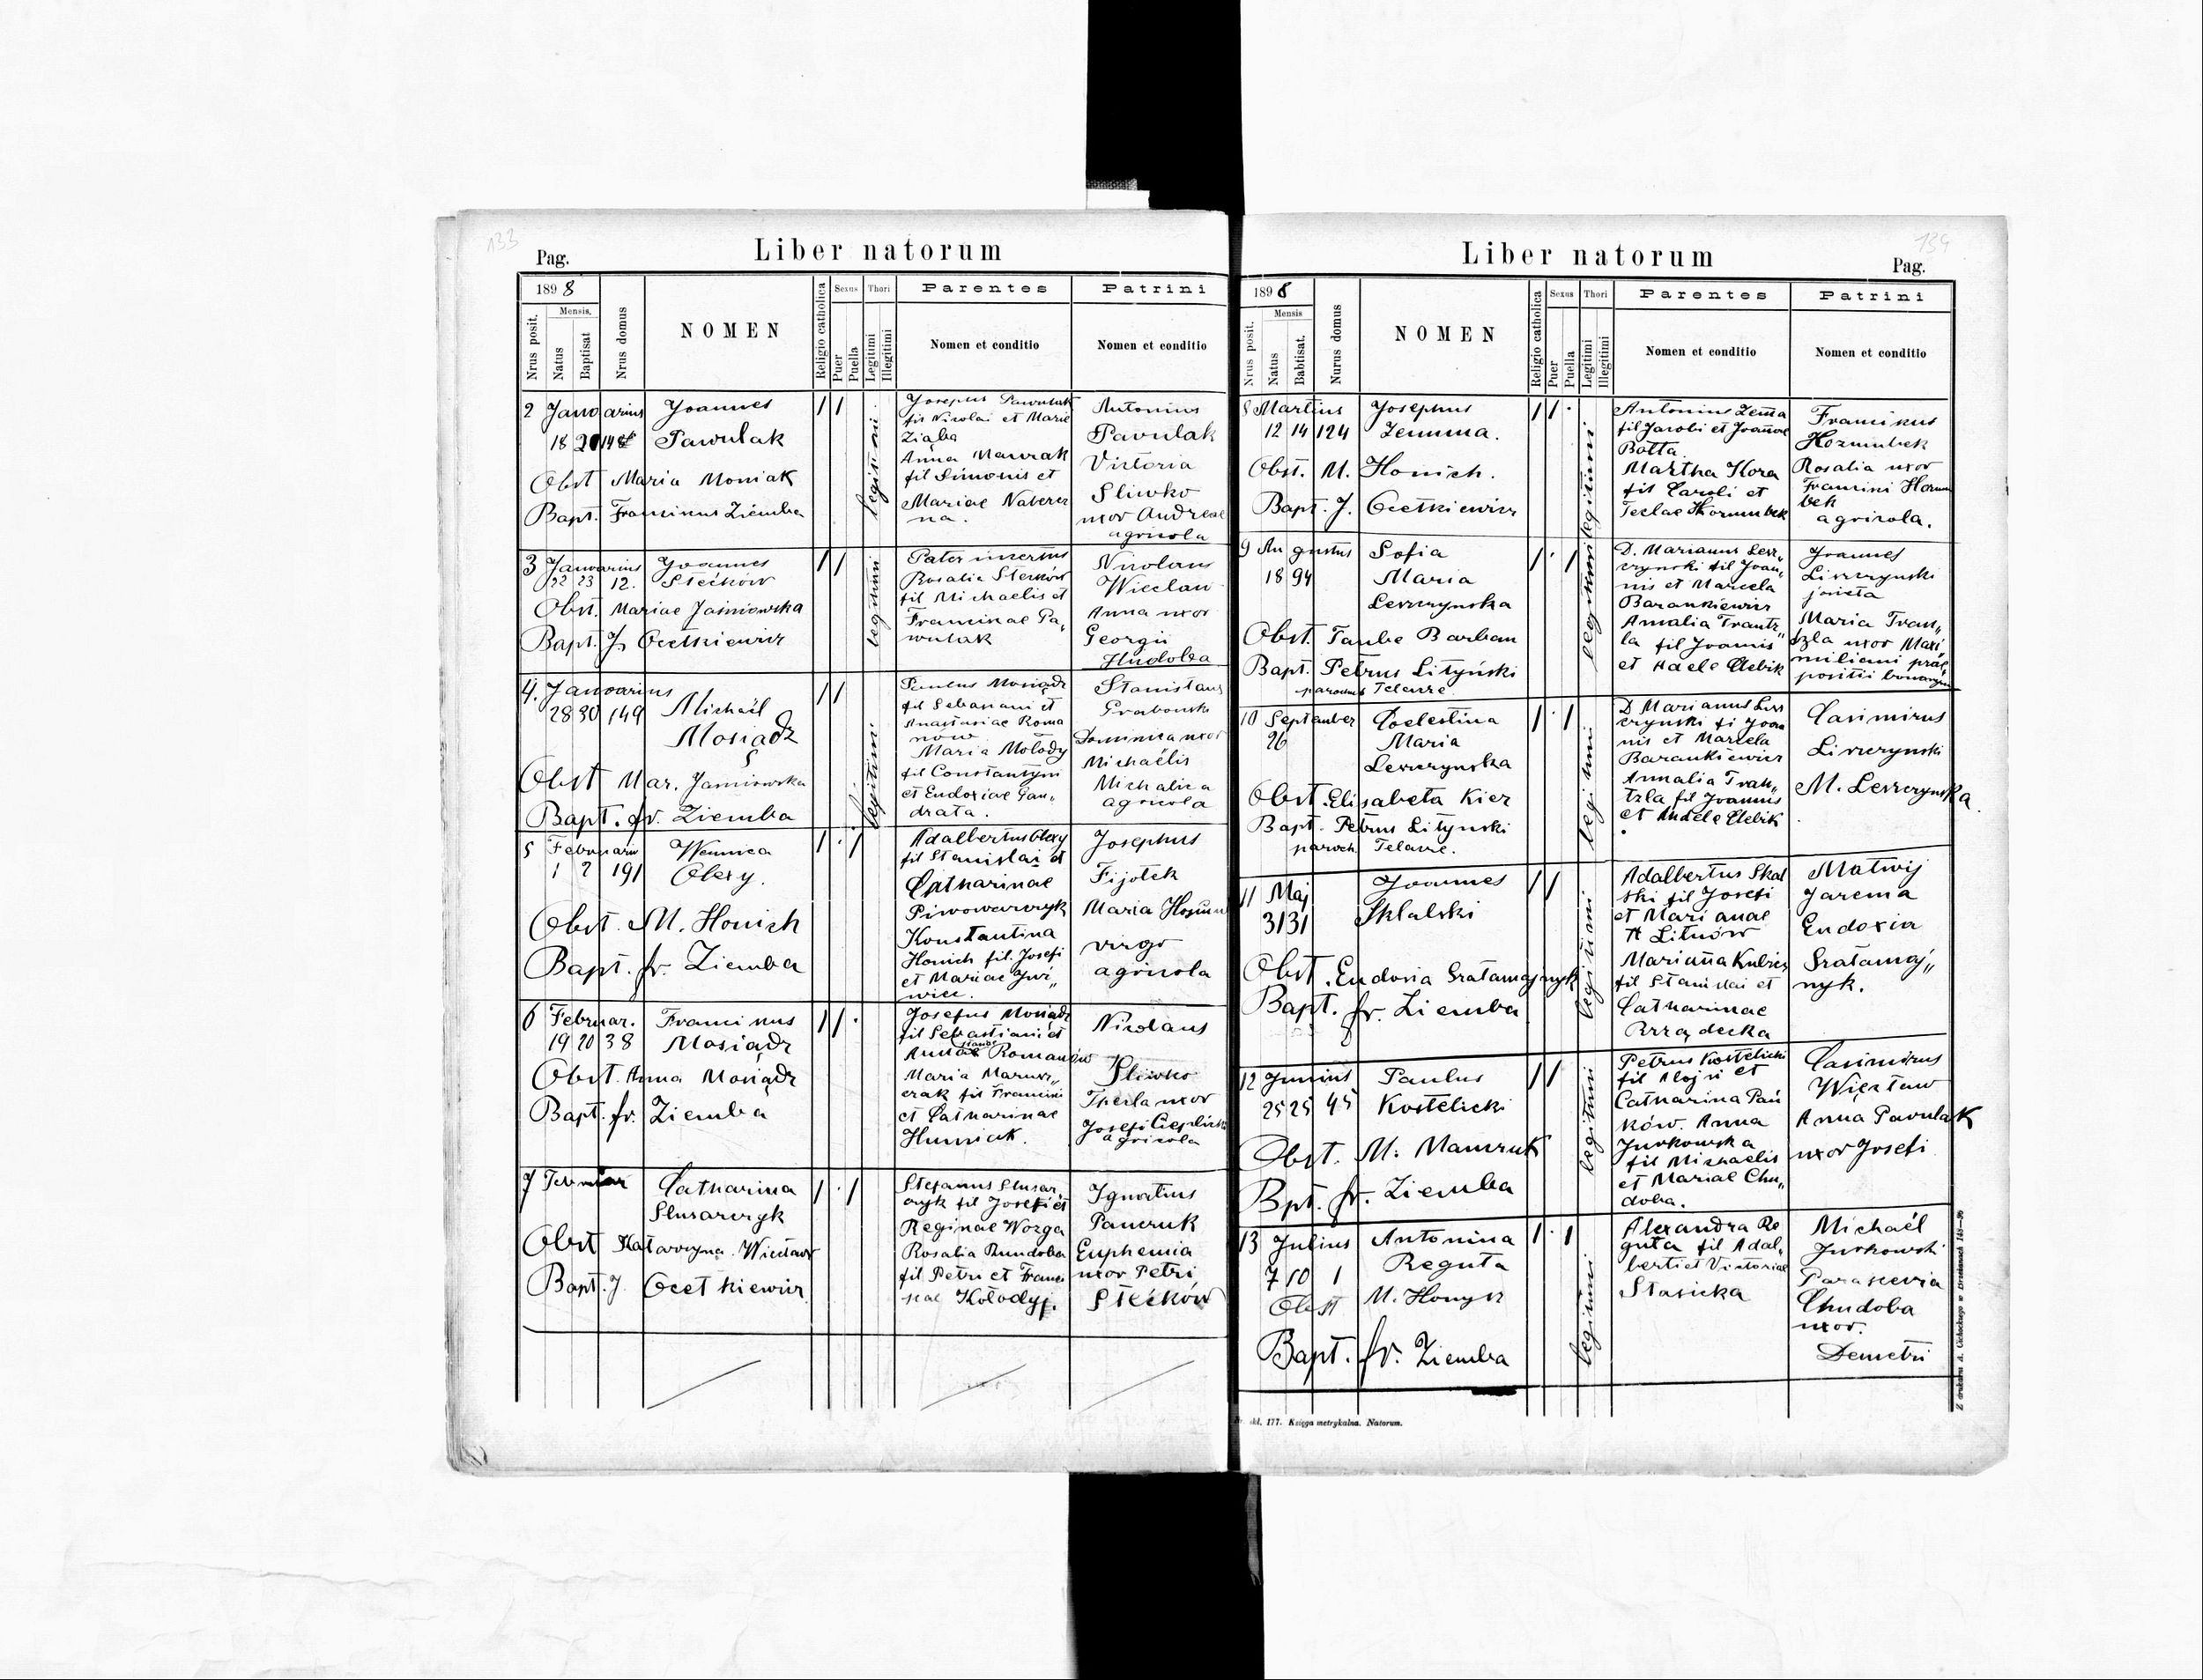 133
Pag.
Liber natorum
1898
Mensis.
Nrus posit.
Natus
Baptisat
Nrus domus
NOMEN
Religio catholica
Sexus
Puer
Puella
Thori
Legitimi
Illegitimi
Parentes
Nomen et conditio
Patrini
Nomen et conditio
2 Januarius
18 20 148
Joannes
Pawulak
Obst Maria Moniak
Bapt. Francinus Ziemba
legitimi
Josephus Pawulak
fil Nicolai et Marie
Ziąba
Anna Mawrak
fil Simonis et
Mariae Naberez
na.
Antonius
Pavulak
Victoria
Sliwko
uxor Andreae
agricola
3 Januarius
22 23 12.
Joannes
Stećków
Obst. Mariae Jaśniowska
Bapt. J. Ocetkiewicz
legitimi
Pater incertus
Rosalia Stećków
fil Michaelis et
Francinae Pa„
wulak
Nicolaus
Wieclaw
Anna uxor
Georgii
Hudoba
4. Januarius
28 30 149
Michaël
Mosiądz
Obst Mar. Jasniowska
Bapt. fr. Ziemba
legitimi
Paulus Mosiądz
fil Sebastiani et
Anastasiae Roma
now
Maria Mołody
fil Constantyni
et Eudoxiae Gan„
drata.
Stanislaus
Grabowski
Dominica uxor
Michaëlis
Michalica
agricola
5 Februarius
1 2 191
Olexy.
Obst. M. Honich
Bapt. fr. Ziemba
Adalbertus Olexy
fil Stanislai et
Catharinae
Piwowarczyk
Konstantina
Honich fil. Josefi
et Mariae
Josephus
Fijołek
Maria
virgo
agricola
6 Februar.
19 20 38
Francinus
Mosiądz
Obst. Anna Mosiądz
Bapt. fr. Ziemba
Josefus Mosiądz
fil Sebastiani et
Romanów
Maria Marusz„
czak fil Francini
et Catharinae
Humniak.
Nicolaus
Sliwko
Thecla uxor
Josefi
agricola
7
Catharina
Slusarczyk
Obst Katarzyna Więcław
Bapt. J Ocetkiewicz
Stefanus Slusar„
czyk fil Josefi et
Reginae Wozga
Rosalia Bundoba
fil Petri et Franci
scae Kołodyj.
Ignatius
Panczuk
Euphemia
uxor Petri
Stećków
134
Liber natorum
Pag.
1898
Mensis
Nrus posit.
Natus
Babtisat.
Nurus domus
NOMEN
Religio catholica
Sexus
Puer
Puella
Thori
Legitimi
Illegitimi
Parentes
Nomen et conditio
Patrini
Nomen et conditio
8 Martius
12 14 124
Josephus
Zemma.
Obst. M. Honich.
Bapt. J. Ocetkiewicz
legitimi
Antonius Zema
fil Jacobi et Joannae
Botta.
Martha Hora
fil Caroli et
Teclae Hozumbek
Francinus
Hozumbek
Rosalia uxor
Francini Hozum
bek
agricola.
9 Augustus
18 94
Sofia
Maria
Leszczynska
Obst. Taube Barban
Bapt. Petrus Lityński
parochus Telacze
legitimi
D. Marianus Lesz„
czynski fil Joan„
nis et Marcela
Barankiewicz
Amalia Trantz„
la fil Joannis
et Adele Clebik
Joannes
Liszczynski
Maria Tran„
zla uxor Maxi„
miliani prae„
positi bonorum
10 September
26
Coelestina
Maria
Leszczynska
Obst. Elisabeta Kiez
Bapt. Petrus Litynski
paroch. Telacze.
legitimi
D Marianus Lisz
czynski fi Joan
nis et Marcela
Barankiewicz
Amalia Tran„
tzla fil Joannis
et Andele Clebik
Casimirus
Liszczynski
M. Leszczynska
11 Maj
31 31
Joannes
Skłalski
Obst. Eudoxia Szatamajnyk
Bapt. fr. Ziemba
legitimi
Adalbertus Skal
ski fil Josefi
et Marianae
A Litnów
Marianna
fil Stanislai et
Catharinae
Rządecka
Matwij
Jarema
Eudoxia
Szatamaj„
nyk.
12 Junius
25 25 45
Paulus
Kostelicki
Obst. M. Mamczuk
Bpt. fr. Ziemba
legitimi
Petrus Kostelicki
fil Alojsi et
Catharina Pań
ków. Anna
Jurkowska
fil Michaelis
et Mariae Chu„
doba.
Casimirus
Więcław
Anna Pavulak
uxor Josefi
13 Julius
7 10 1
Antonina
Reguła
Obst M. Honycz
Bapt. fr. Ziemba
legitimi
Alexandra Re
guła fil Adal„
berti et Victoriae
Stasicka
Michaël
Jurkowski
Parascevia
Chudoba
uxor.
Demetri
skl. 177. Księga metrykalna. Natorum.